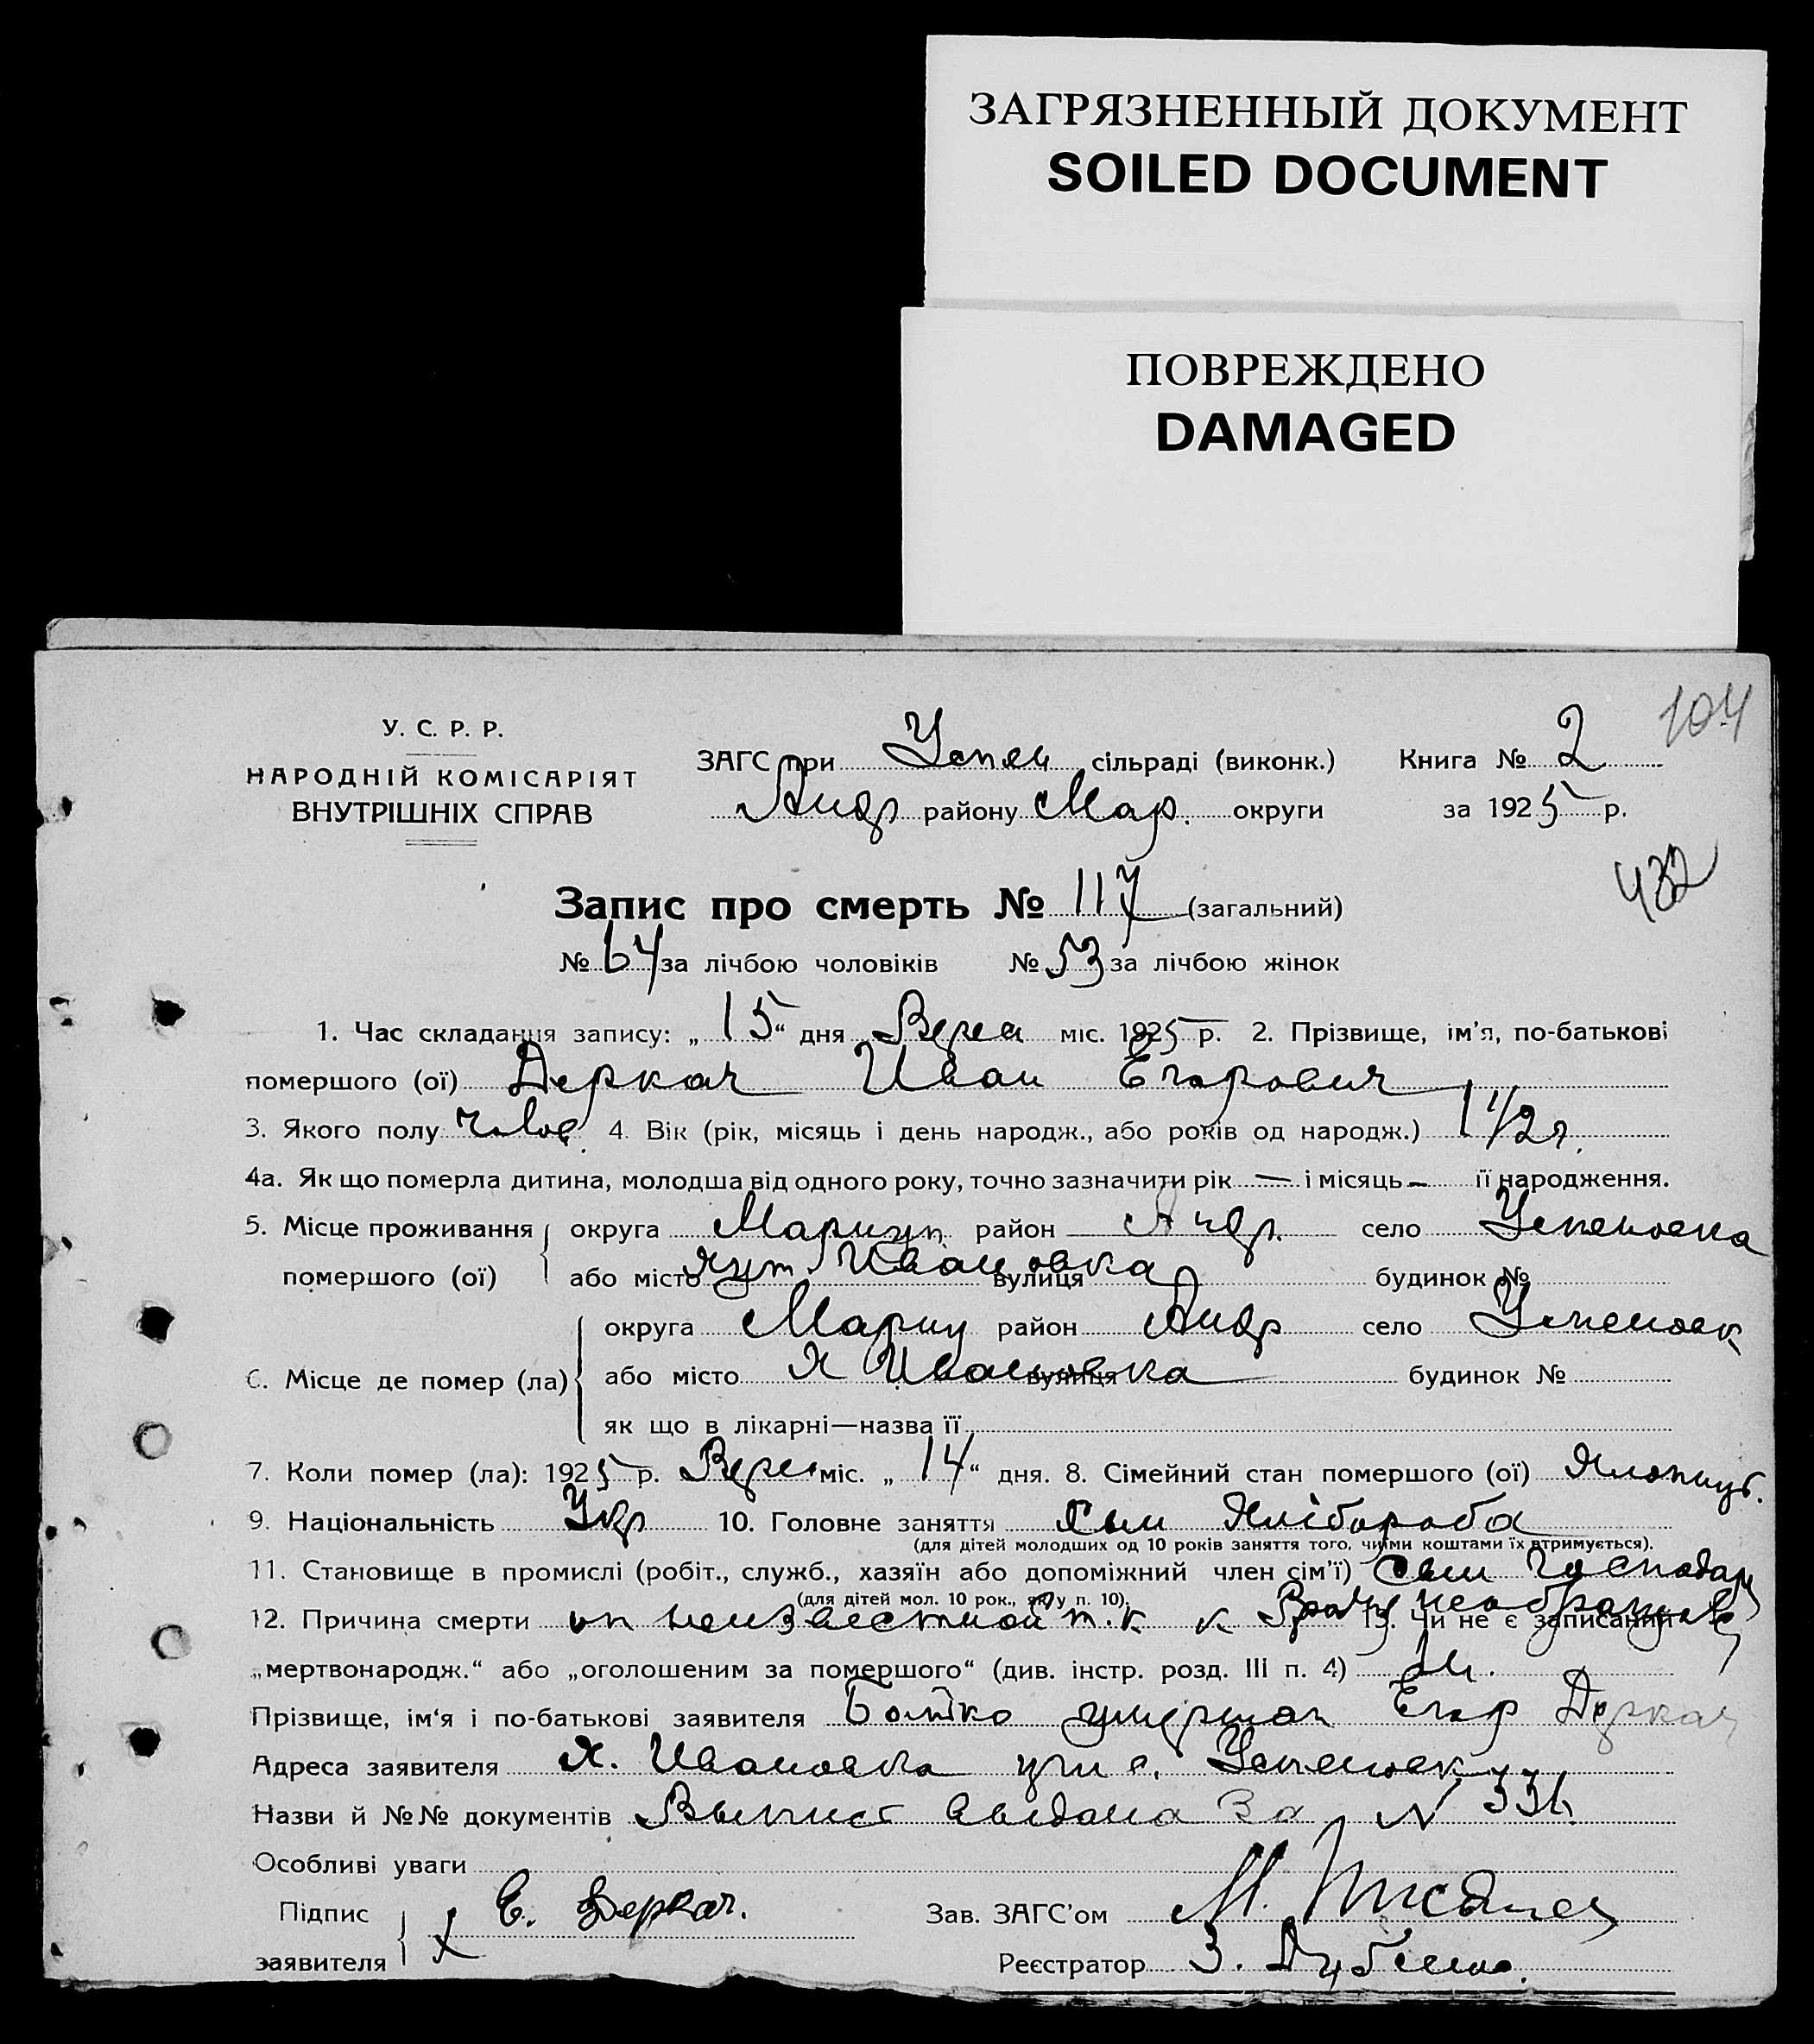 ЗАГРЯЗНЕННЫЙ ДОКУМЕНТ
SOILED DOCUMENT
ПОВРЕЖДЕНО
DAMAGED
104
У. С. Р. Р.
НАРОДНІЙ КОМІСАРІЯТ
ВНУТРІШНІХ СПРАВ
ЗАГС при Успен сільраді (виконк.) Книга № 2
Андр району Мар. округи за 1925 р.
432
Запис про смерть № 117 (загальний)
№ 64 за лічбою чоловіків № 53 за лічбою жінок
1. Час складання запису: „15“ дня Верес міс. 1925 р. 2. Прізвище, ім'я, по-батькові
помершого (ої) Деркач Иван Егорович
3. Якого полу чолов. 4. Вік (рік, місяць і день народж., або років од народж.) 1 1/2 г.
4а. Як що померла дитина, молодша від одного року, точно зазначити рік — і місяць — її народження.
5. Місце проживання округа Мариуп. район Андр. село Успеновка
помершого (ої) або місто хут Ивановка вулиця будинок №
округа Мариу район Андр село Успеновк
6. Місце де помер (ла) або місто Х Ивановка вулиця будинок №
як що в лікарні—назва її
7. Коли помер (ла): 1925 р. Верес міс. „14“ дня. 8. Сімейний стан помершого (ої)
9. Національність Укр 10. Головне заняття Сын Хлібороба
(для дітей молодших од 10 років заняття того, чиїми коштами їх втримується).
11. Становище в промислі (робіт., служб., хазяїн або допоміжний член сім'ї) Сын Господар
(для дітей мол. 10 рок., як у п. 10).
12. Причина смерти от неизвестной т.к к Врачу необращ 13. Чи не є записаний
„мертвонародж.“ або „оголошеним за помершого“ (див. інстр. розд. III п. 4)
Прізвище, ім'я і по-батькові заявителя Батько Егор Деркач
Адреса заявителя Х. Ивановка при с. Успеновк
Назви й №№ документів Выпись выдана за N 336
Особливі уваги
Підпис заявителя Е. Деркач. Зав. ЗАГС'ом М.
Реєстратор З.